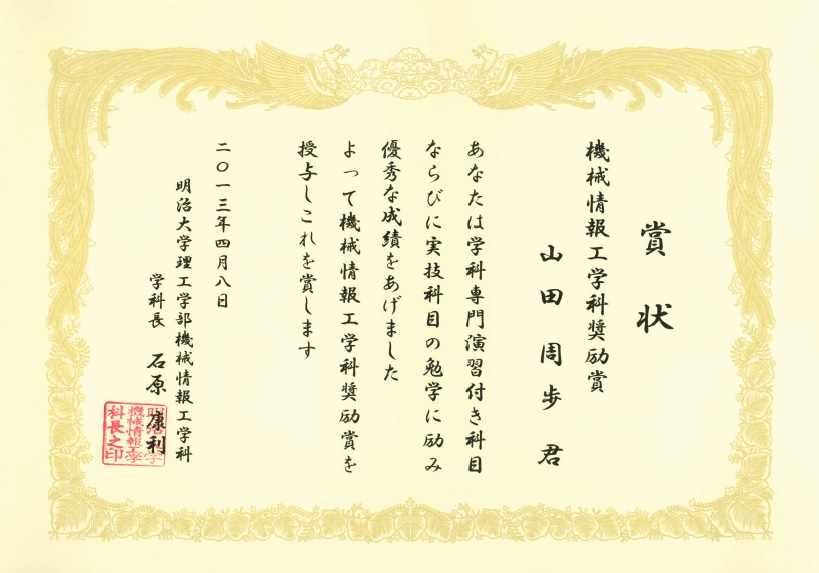 賞状
機械情報工学科奨励賞
山田周歩君
あなたは学科専門演習付き科目
ならびに実技科目の勉学に励み
優秀な成績をあげました
よって機械情報工学科奨励賞を
授与しこれを賞します
二〇一三年四月八日
明治大学理工学部機械情報工学科
学科長 石原康利
機械情報工学
科長之印